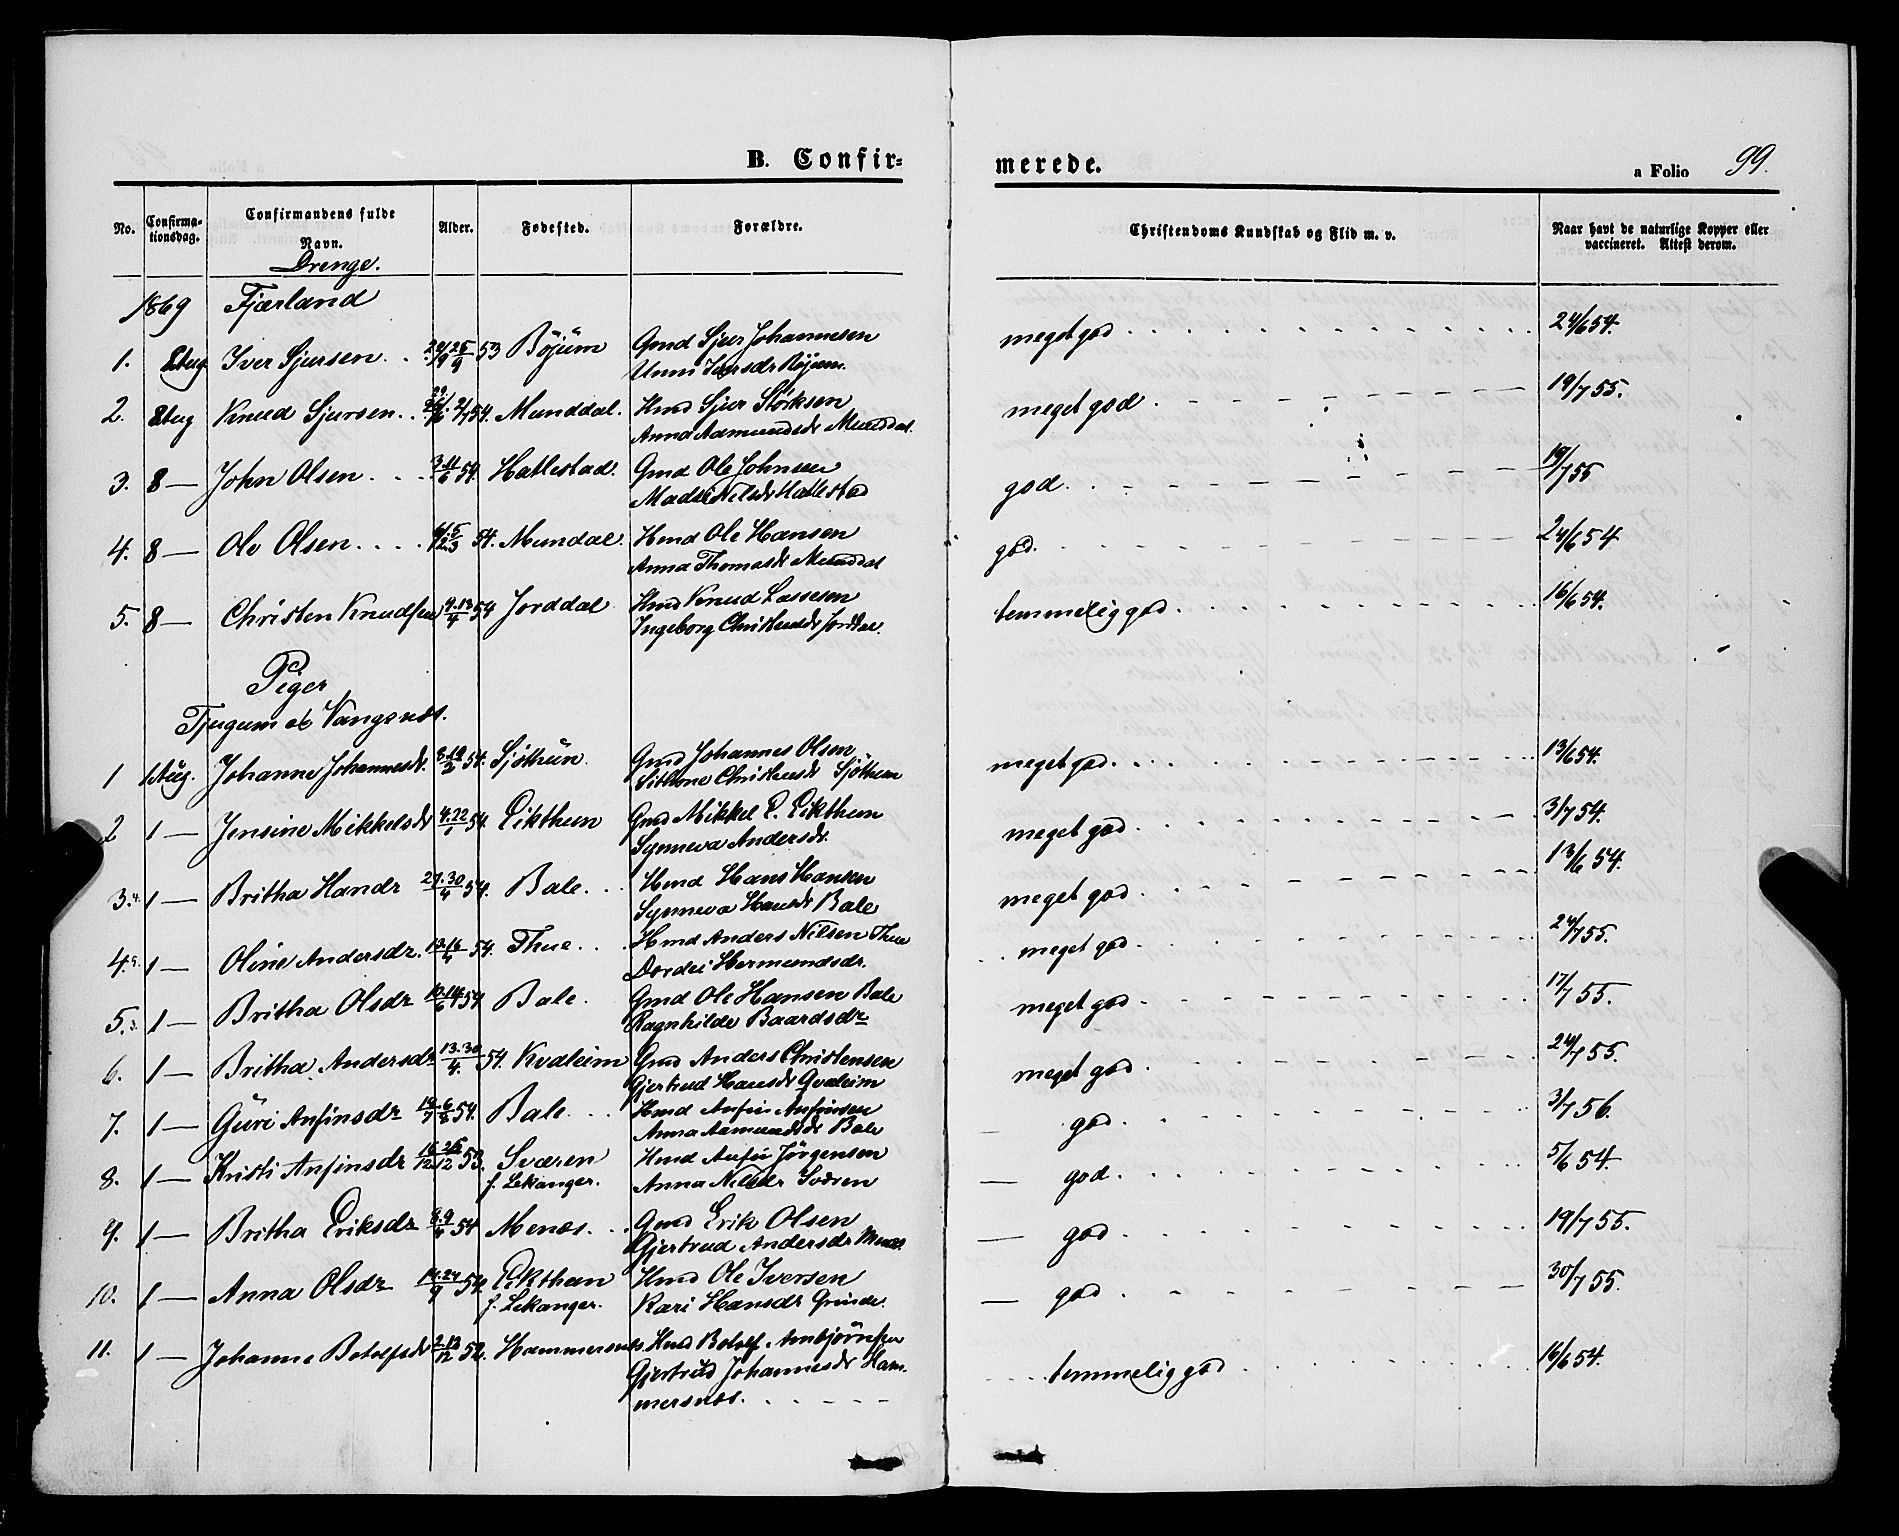 B. Confir=
merede.
a Folio 99.
No. Confirma-tionsdag. Confirmandens fulde Navn. Alder. Fødested. Forældre. Christendoms Kundskab og Flid m. v. Naar havt de naturlige Kopper eller vaccineret. Attest derom.
Drenge.
1869 Fjærland
1. 8 Aug Iver Sjursen 53 Böjum Gmd Sjur Johannesen meget god 24/6 54.
Unni Iversdr Böjum.
2. 8 Aug Knud Sjursen 54. Munddal. Hmd Sjur Störksen meget god 19/7 55.
Anna Aamundsdr Munddal.
3. 8 — John Olsen 54. Hatlestad. Gmd Ole Johnsen god. 19/7 55
Madsi Nilsdr Hatlestad
4. 8 — Ole Olsen 54. Mundal. Hmd Ole Hansen god. 24/6 54
Anna Thomasdr Munddal
5. 8 — Christen Knudsen 4.13/4 54 Jorddal Hmd Knud Lassesen temmelig god. 16/6 54.
Ingeborg Christensdr Jorddal.
Piger
Tjugum et Vangsnes.
1 1 Aug. Johanne Johannesdr. 8.19/2 54. Sjöthun Gmd Johannes Olsen meget god. 13/6 54.
Christensdr Sjöthun
2 1 — Jensine Mikkelsdr 54. Eikthun Gmd Mikkel E. Eikthun meget god 3/7 54.
Synneva Andersdr.
3. 4. 1 — Britha Handr 27.30/4 54. Bale. Hmd Hans Hansen meget god 13/6 54.
Synneva Hansdr Bale
4. 5. 1 — Oline Andersdr. 54. Thue. Hmd Anders Nilsen Thue meget god 24/7 55.
Dordei Hermundsdr.
5. 3. 1 — Britha Olsdr 10.14/6 54 Bale. Gmd Ole Hansen Bale meget god 17/7 55.
Ragnhilde Baardsdr
6. 1 — Britha Andersdr 13.30/4. 54. Kvaleim Gmd Anders Christensen meget god 24/7 55.
Gjertrud Hansdr Qvaleim
7. 1 — Guri Anfinsdr 54. Bale. Hmd Anfin Anfinsen — god. 3/7 56.
Anna Aamundsdr Bale
8. 1 — Kristi Anfinsdr 53. Sværen Hmd Anfin Jörgensen — god 5/6 54.
f. Lekanger. Anna Nilsdr Sværen
9. 1 — Britha Eriksdr 54 Menæs. Gmd Erik Olsen — god 19/7 55.
Gjertrud Andersdr Menæs.
10. 1 — Anna Olsdr 54. Eikthun Hmd Ole Iversen — god 30/7 55.
f. Lekanger. Kari Hansdr Grinde.
11. 1 — Johanne Botolfsdr 2.13/12 52. Hammersnes. Hmd Botolf Arnbjörnsen temmelig god 16/6 54.
Gjertrud Johannesdr Ham-
mersnæs.